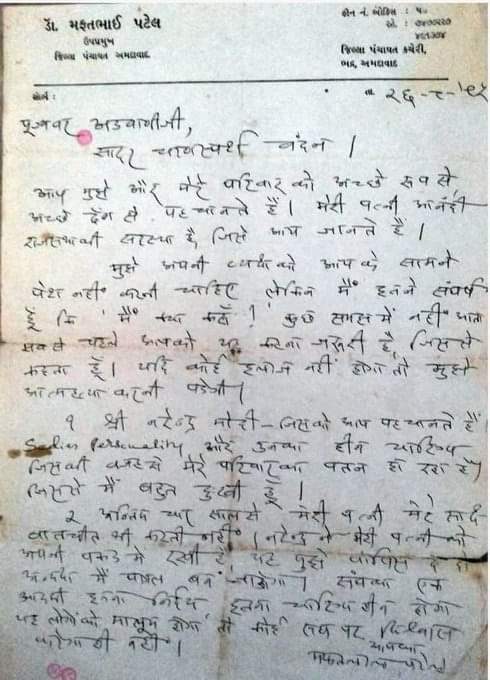 ડૉ. મફતભાઈ પટેલ
ઉપપ્રમુખ
જિલ્લા પંચાયત અમદાવાદ
ફોન નં. ઓફિસ :
જિલ્લા પંચાયત કચેરી,
ભદ્ર, અમદાવાદ
તા.
पूज्यवर अडवाणीजी,
सादर चरणस्पर्श वंदन ।
आप मुझे और मेरे परिवार को अच्छे रूप से,
अच्छे ढंग से पहचानते हैं । मेरी पत्नी आनंदी
सदस्या है, जिसे आप जानते हैं ।
मुझे अपनी व्यथा को आप के सामने
पेश नहीं करनी चाहिए लेकिन मैं इतने संघर्ष
हूँ कि मैं क्या करूँ ? कुछ समझ में नहीं आता
सबसे पहले आपको यह कहना ज़रूरी है, जिससे
कहता हूँ । यदि कोई इलाज नहीं होगा तो मुझे
आत्महत्या करनी पड़ेगी ।
१ श्री नरेन्द्र मोदी - जिसको आप पहचानते हैं
Personality और उनका हीन चारित्र्य
जिसकी वजह से मेरे परिवार का पतन हो रहा है,
जिससे मैं बहुत दुःखी हूँ ।
२ साल से मेरी पत्नी मेरे साथ
बातचीत भी करती नहीं । नरेन्द्र ने मेरी पत्नी को
अपनी पकड़ में रखी है, वह मुझे वापिस दे दो
मैं पागल बन जाऊंगा । संघ का एक
आदमी इतना इतना चारित्र्यहीन होगा
यह लोगों को मालूम होगा तो कोई संघ पर विश्वास
करेगा ही नहीं ।
आपका